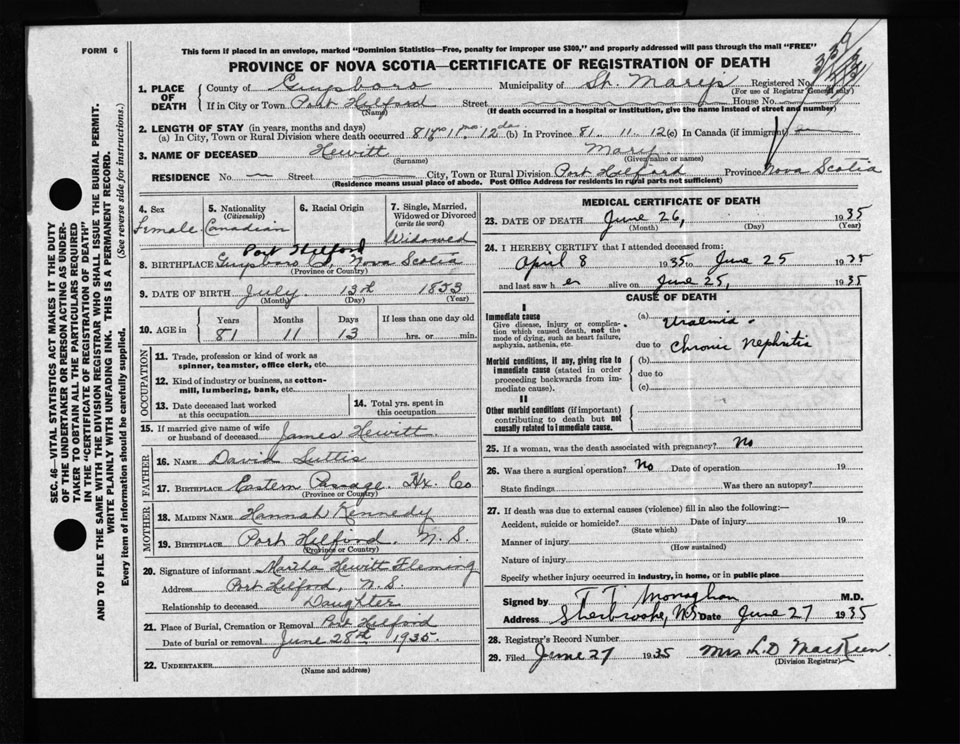 FORM 6
This form if placed in an envelope, marked "Dominion Statistics—Free, penalty for improper use $300," and properly addressed will pass through the mail "FREE"
PROVINCE OF NOVA SCOTIA—CERTIFICATE OF REGISTRATION OF DEATH
1. PLACE OF DEATH
County of Guysboro Municipality of St. Mary's Registered No.
(For use of Registrar General only)
If in City or Town Port Hilford Street House No.
(Name) (If death occurred in a hospital or institution, give the name instead of street and number)
2. LENGTH OF STAY (in years, months and days)
(a) In City, Town or Rural Division where death occurred 81 yrs 11 mos 12 da. (b) In Province 81. 11. 12 (c) In Canada (if immigrant)
3. NAME OF DECEASED Hewitt Mary
(Surname) (Given name or names)
RESIDENCE No. Street City, Town or Rural Division Port Hilford Province Nova Scotia
(Residence means usual place of abode. Post Office Address for residents in rural parts not sufficient)
4. Sex
Female
5. Nationality
(Citizenship)
Canadian
6. Racial Origin
7. Single, Married, Widowed or Divorced
(write the word)
Widowed
Port Hilford
8. BIRTHPLACE Guysboro Co. Nova Scotia
(Province or Country)
9. DATE OF BIRTH July 13th 1853
(Month) (Day) (Year)
10. AGE in
Years Months Days If less than one day old
81 11 13 hrs. or min.
OCCUPATION
11. Trade, profession or kind of work as spinner, teamster, office clerk, etc.
12. Kind of industry or business, as cotton-mill, lumbering, bank, etc.
13. Date deceased last worked at this occupation
14. Total yrs. spent in this occupation
15. If married give name of wife or husband of deceased James Hewitt
FATHER
16. NAME David Suttis
17. BIRTHPLACE Eastern Passage. Hx. Co
(Province or Country)
MOTHER
18. MAIDEN NAME Hannah Kennedy
19. BIRTHPLACE Port Hilford. N.S.
(Province or Country)
20. Signature of informant Martha Hewitt Fleming
Address Port Hilford, N.S.
Relationship to deceased Daughter
21. Place of Burial, Cremation or Removal Port Hilford
Date of burial or removal June 28th 1935
22. UNDERTAKER
(Name and address)
MEDICAL CERTIFICATE OF DEATH
23. DATE OF DEATH June 26, 1935
(Month) (Day) (Year)
24. I HEREBY CERTIFY that I attended deceased from:
April 8 1935 to June 25 1935
and last saw h er alive on June 25, 1935
CAUSE OF DEATH
I
Immediate cause
Give disease, injury or complication which caused death, not the mode of dying, such as heart failure, asphyxia, asthenia, etc.
(a) Uraemia.
due to Chronic Nephritis
Morbid conditions, if any, giving rise to immediate cause (stated in order proceeding backwards from immediate cause).
(b)
due to
(c)
II
Other morbid conditions (if important) contributing to death but not causally related to immediate cause.
25. If a woman, was the death associated with pregnancy? No
26. Was there a surgical operation? No Date of operation 19
State findings Was there an autopsy?
27. If death was due to external causes (violence) fill in also the following:—
Accident, suicide or homicide? Date of injury 19
(State which)
Manner of injury
(How sustained)
Nature of injury
Specify whether injury occurred in industry, in home, or in public place
Signed by T T Monaghan M.D.
Address Sherbrooke, N.S. Date June 27 1935
28. Registrar's Record Number
29. Filed June 27 1935 Mrs L.D MacKeen
(Division Registrar)
SEC. 46—VITAL STATISTICS ACT MAKES IT THE DUTY
OF THE UNDERTAKER OR PERSON ACTING AS UNDERTAKER
TO OBTAIN ALL THE PARTICULARS REQUIRED
IN THE "CERTIFICATE OF REGISTRATION OF DEATH"
AND TO FILE THE SAME WITH THE DIVISION REGISTRAR WHO SHALL ISSUE THE BURIAL PERMIT.
WRITE PLAINLY WITH UNFADING INK. THIS IS A PERMANENT RECORD.
Every item of information should be carefully supplied. (See reverse side for instructions.)